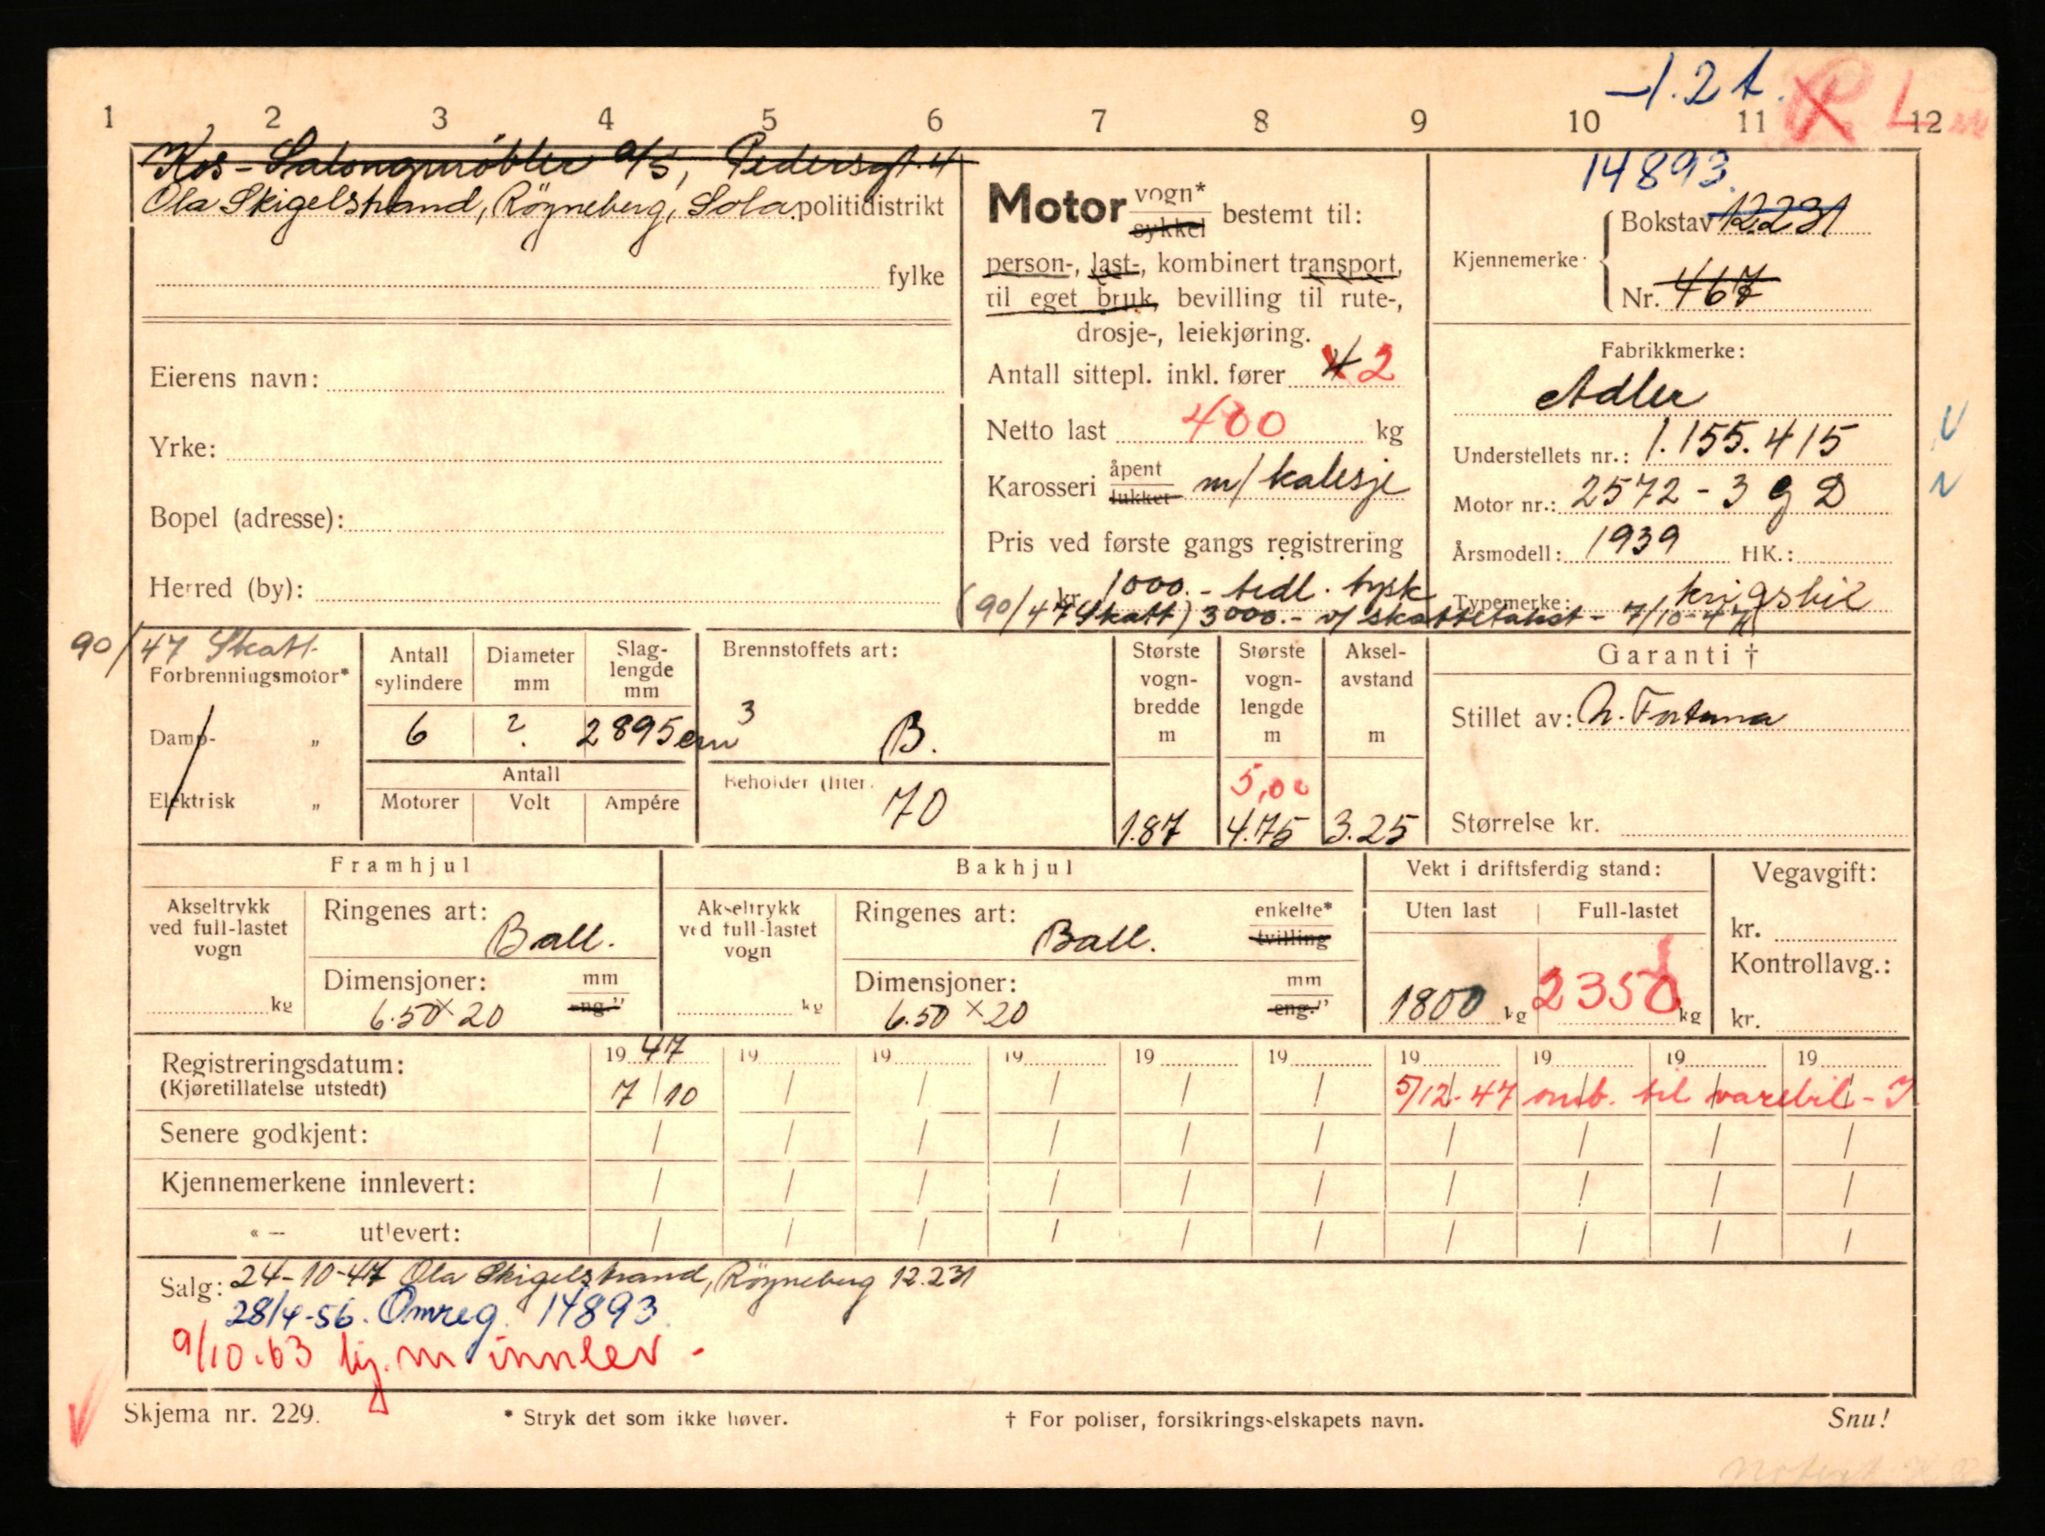 -1.2 t.
1 2 3 4 5 6 7 8 9 10 11 12
Kos-Salongmöbler a/s, Pedersgt. 4
Ola Skigelstrand, Röyneberg, Sola politidistrikt
fylke
Eierens navn:
Yrke:
Bopel (adresse):
Herred (by):
Motor vogn* sykkel bestemt til:
person-, last-, kombinert transport,
til eget bruk, bevilling til rute-,
drosje-, leiekjøring.
Antall sittepl. inkl. fører 4 2
Netto last 400 kg
Karosseri åpent lukket m/ kalesje
Pris ved første gangs registrering
kr. 1000.- bedl. tysk
(90/47 Skatt) 3000.- v/ skattetakst - 7/10-47
14893.
Kjennemerke: Bokstav 12231
Nr. 467
Fabrikkmerke:
Adler
Understellets nr.: 1.155.415
Motor nr.: 2572-3 g D
Årsmodell: 1939 HK.:
Typemerke: krigsbil
90/47 Skatt
Forbrenningsmotor*
Damp- „
Elektrisk „
Antall sylindere Diameter mm Slaglengde mm
6 ? 2895 cm3
Antall
Motorer Volt Ampére
Brennstoffets art:
B.
Beholder (liter.
70
Største vognbredde m Største vognlengde m Akselavstand m
5,00
1.87 4.75 3.25
Garanti †
Stillet av: N. Fortuna
Størrelse kr.
Framhjul
Akseltrykk ved full-lastet vogn kg
Ringenes art: Ball.
Dimensjoner: mm eng."
6.50 x 20
Bakhjul
Akseltrykk ved full-lastet vogn kg
Ringenes art: enkelte* tvilling
Ball.
Dimensjoner: mm eng."
6.50 x 20
Vekt i driftsferdig stand:
Uten last Full-lastet
1800 kg 2350 kg
Vegavgift:
kr.
Kontrollavg.:
kr.
Registreringsdatum: 19 47 19 19 19 19 19 19 19 19 19
(Kjøretillatelse utstedt) 7/10 / / / / / 5/12-47 omb. til varebil -
Senere godkjent: / / / / / / / / / /
Kjennemerkene innlevert: / / / / / / / / / /
« — utlevert: / / / / / / / / / /
Salg: 24-10-47 Ola Skigelstrand, Röyneberg 12.231
28/4-56. Omreg. 14893.
9/10.63 kj.m innlev -
Skjema nr. 229. * Stryk det som ikke høver. † For poliser, forsikrings-elskapets navn. Snu!